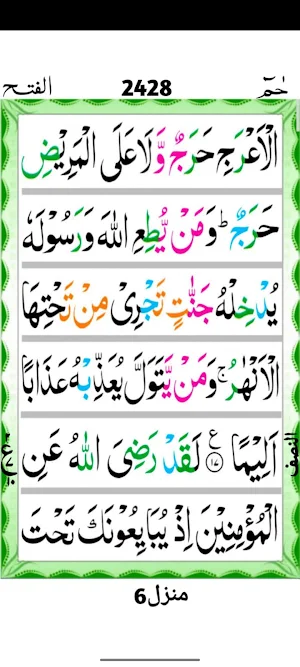 الفتح 2428 حٰمٓ
الْاَعْرَجِ حَرَجٌ وَّلَا عَلَى الْمَرِيْضِ
حَرَجٌ ؕ وَمَنْ يُّطِعِ اللّٰهَ وَرَسُوْلَهٗ
يُدْخِلْهُ جَنّٰتٍ تَجْرِىْ مِنْ تَحْتِهَا
الْاَنْهٰرُ ۚ وَمَنْ يَّتَوَلَّ يُعَذِّبْهُ عَذَابًا
اَلِيْمًا ﴿۱۷﴾ ع لَقَدْ رَضِىَ اللّٰهُ عَنِ
النصف
الْمُؤْمِنِيْنَ اِذْ يُبَايِعُوْنَكَ تَحْتَ
منزل6